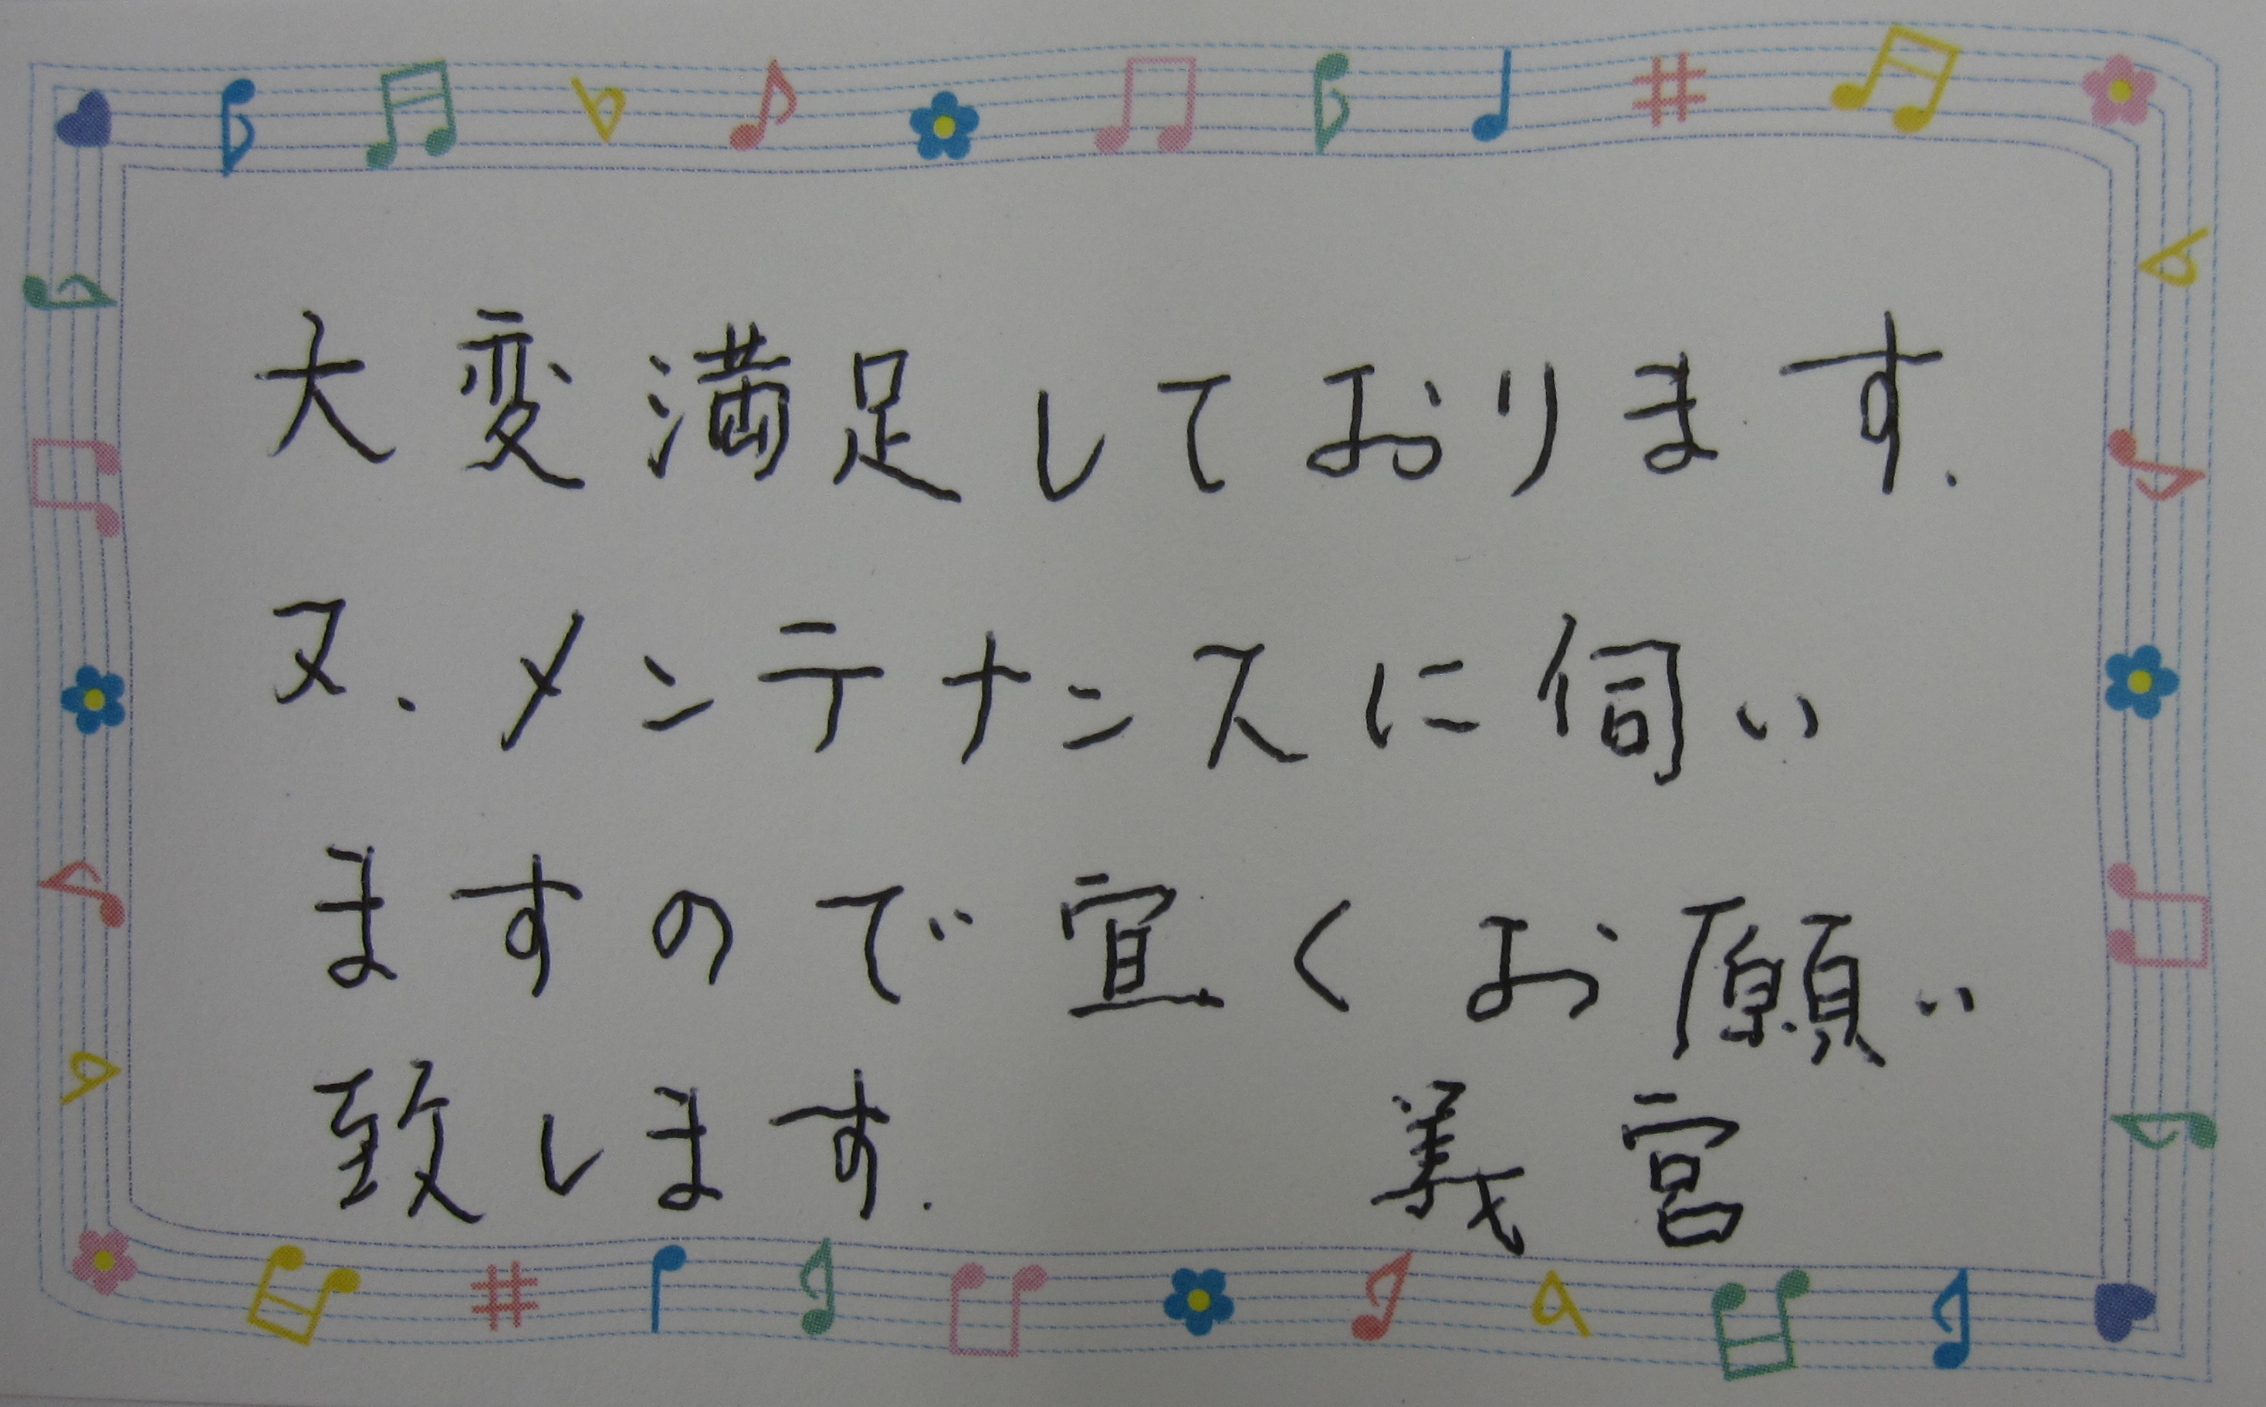 大変満足しております.
又、メンテナンスに伺い
ますので宜くお願い
致します.　義宮